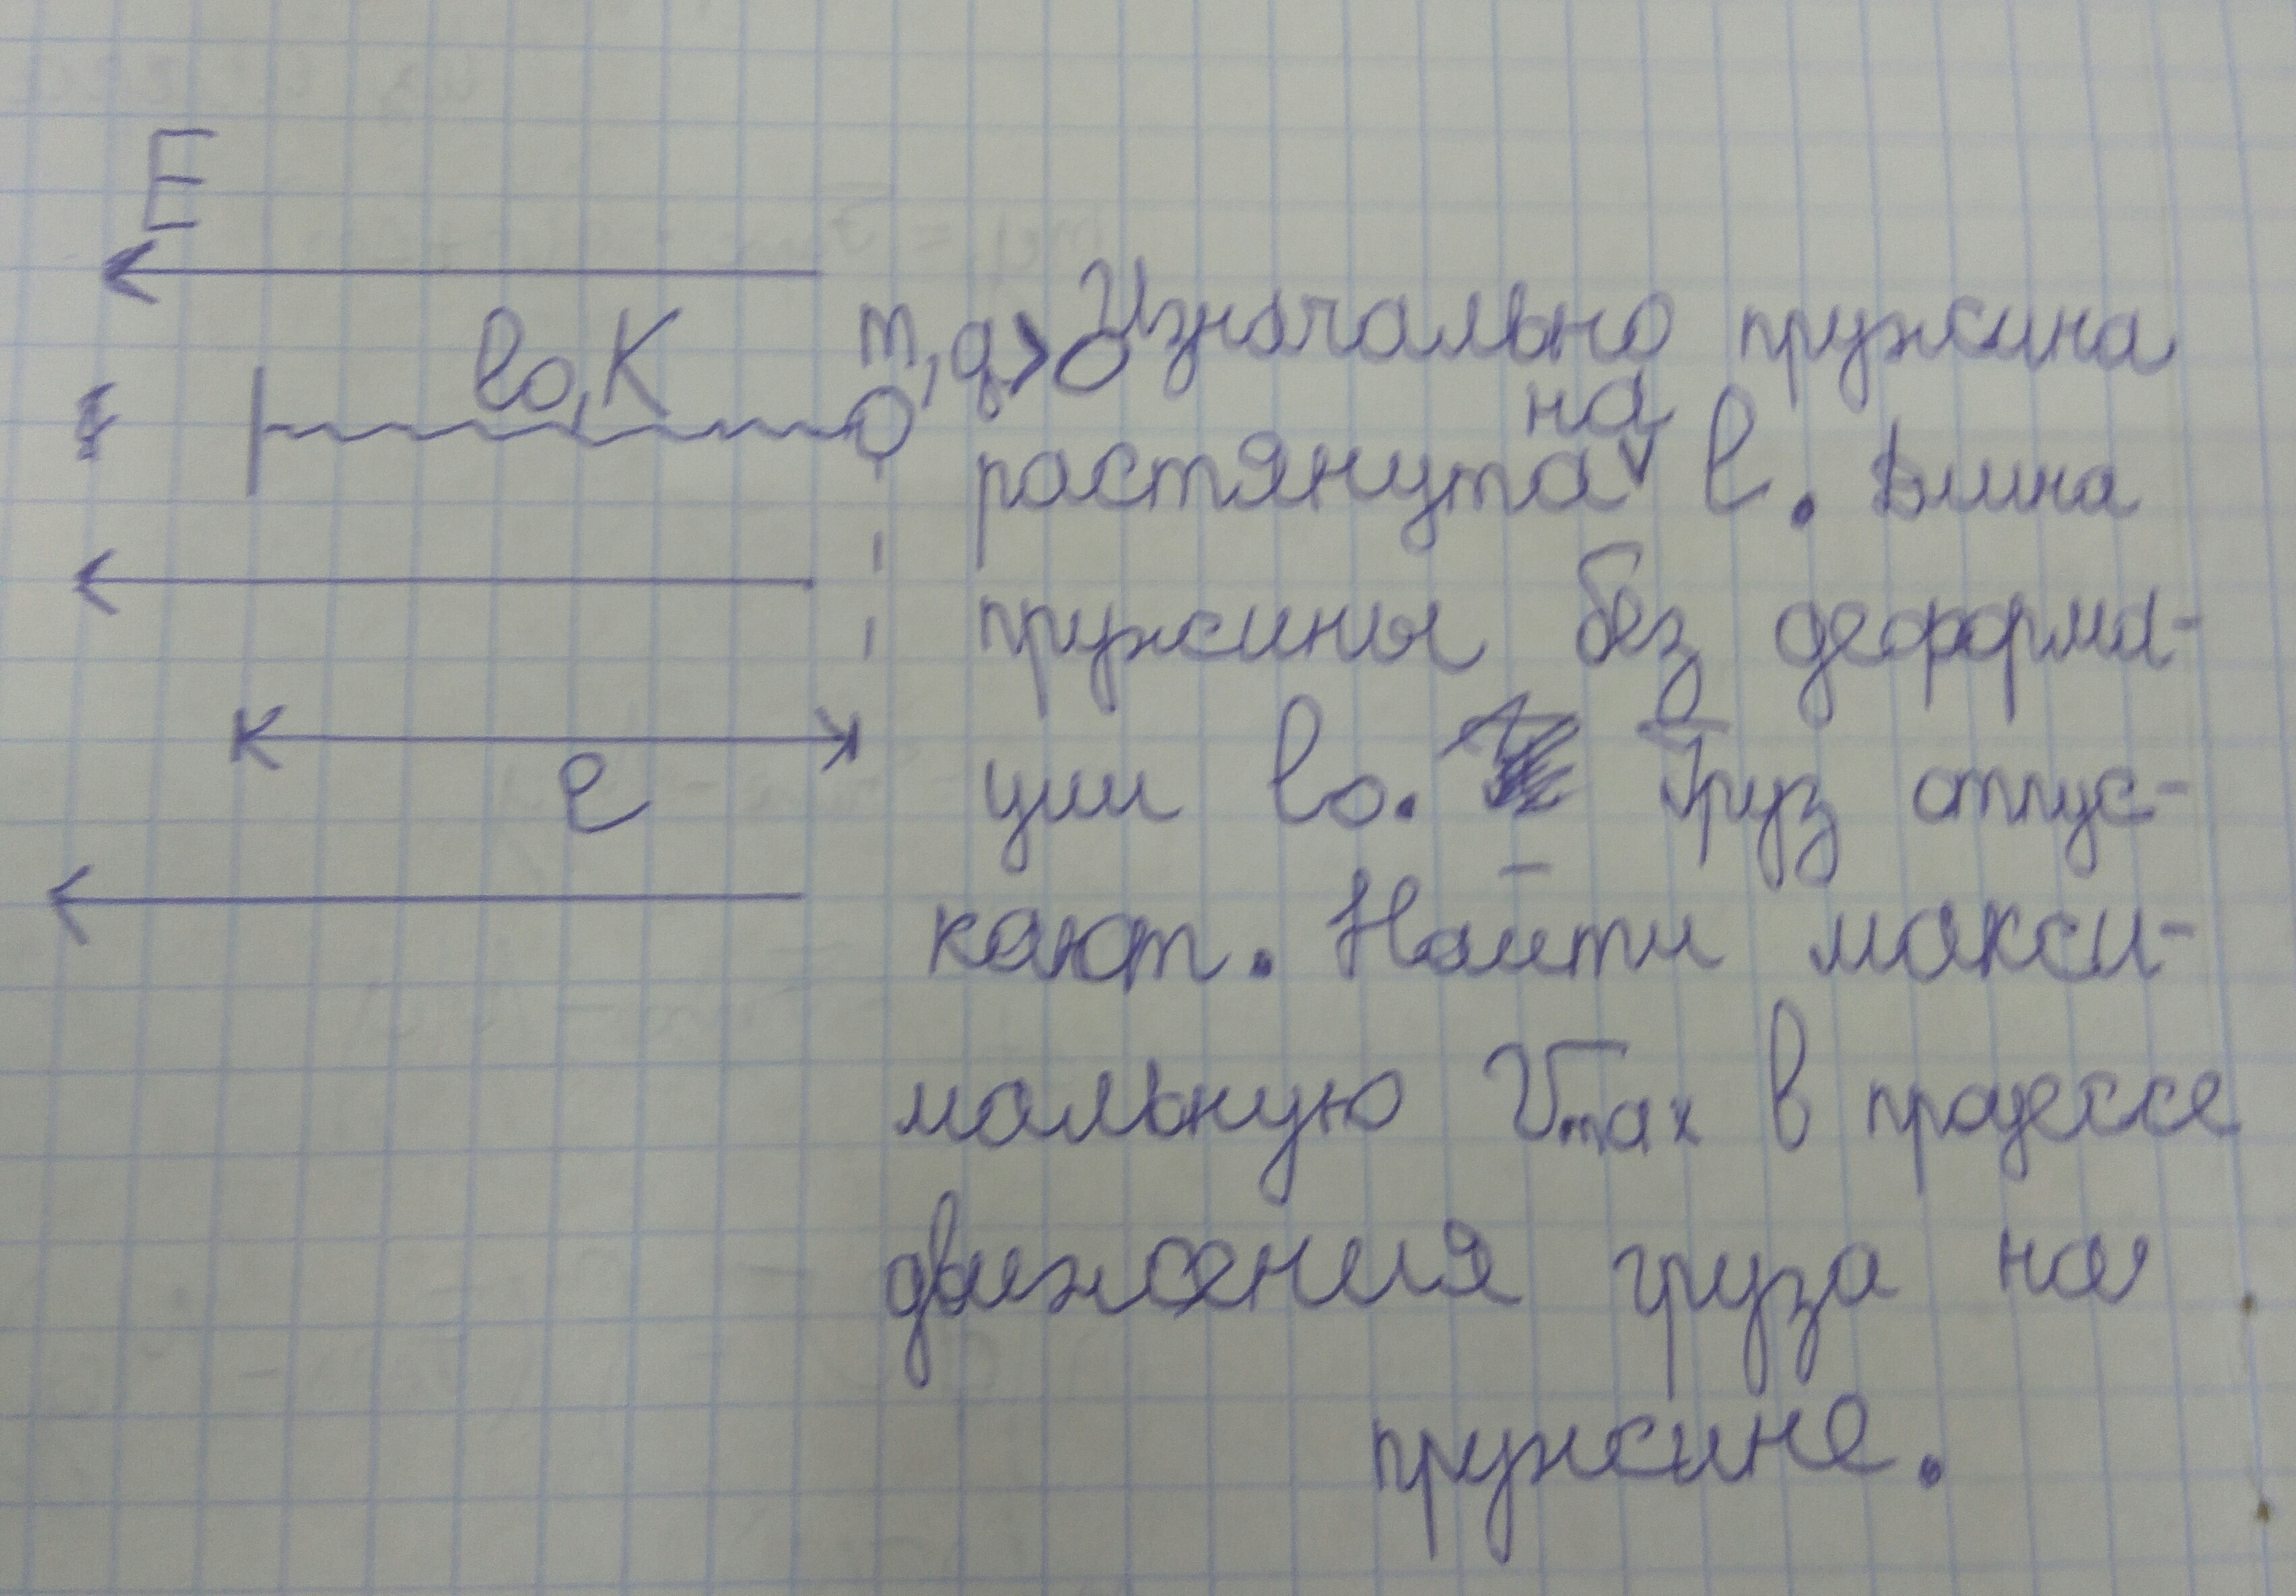 E
l₀, K
m, q>0 Изначально пружина
на
растянута l. Длина
пружины без деформа-
l
ции l₀. Груз отпус-
кают. Найти макси-
мальную Vmax в процессе
движения груза на
пружине.